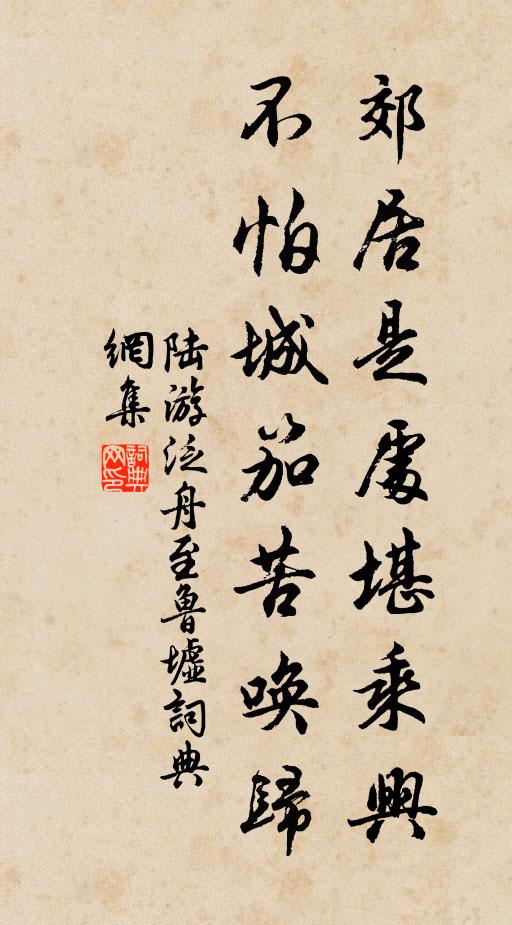 郊居是處堪乘興
不怕城笳苦喚歸
陸游泛舟至魯墟詞典
網集
詞典網印